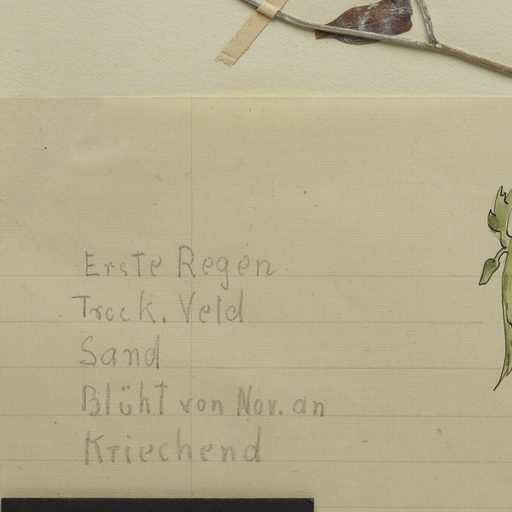 Erste Regen
Trock. Veld
Sand
Blüht von Nov. an
Kriechend